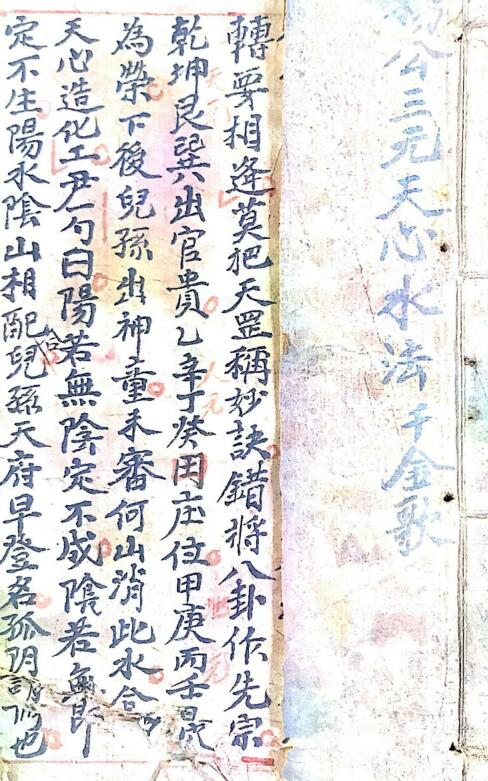 楊公三元天心水法千金歌
轉要相逢莫把天罡稱妙訣錯將八卦作先宗
乾坤艮巽出官貴乙辛丁癸田庄位甲庚丙壬最
天元
人元
地元
為榮下後兒孫出神童未審何山消此水合
天心造化工尹一勺曰陽若無陰定不成陰若無阳
定不生陽水陰山相配合兒孫天府早登名孤阴也